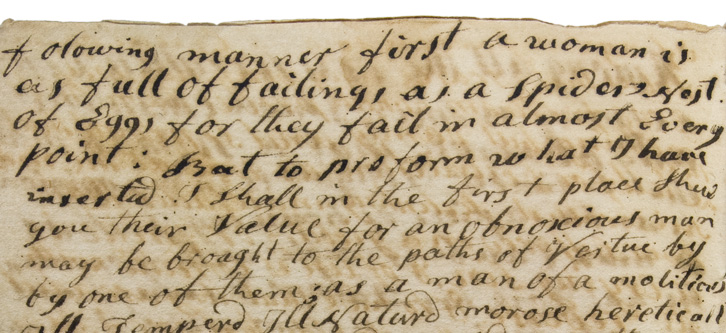 folowing manner first a woman is
as full of failings as a Spiders Nest
of Eggs for they fail in almost Every
point: But to proform what I have
inserted I shall in the first place Shew
you their Value for an obnoxious man
may be brought to the paths of Vertue by
by one of them: as a man of a molitious
Ill Temperd Ill Naturd morose hereticall